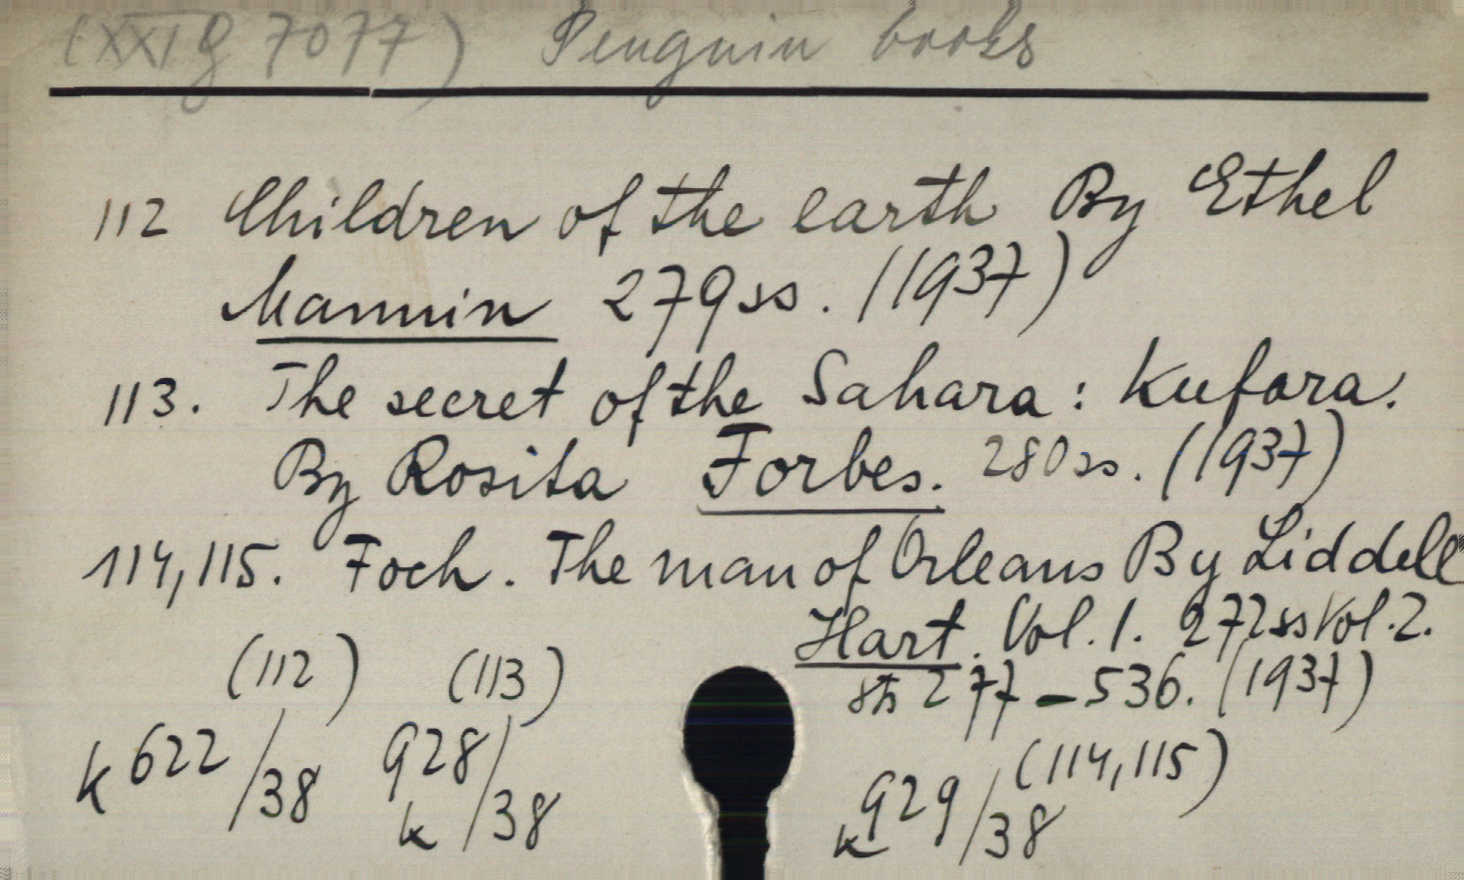 (XXI g 7077) Penguin books
112 Children of the earth By Ethel
Mannin 279 ss. (1937)
113. The secret of the Sahara: Kufara.
By Rosita Forbes. 280 ss. (1937)
114,115. Foch. The man of Orleans By Liddell
Hart. Vol. 1. 272 ss Vol. 2.
277-536. (1937)
(112) (113)
k 622/38 928/38 k
(114,115)
k 929/38